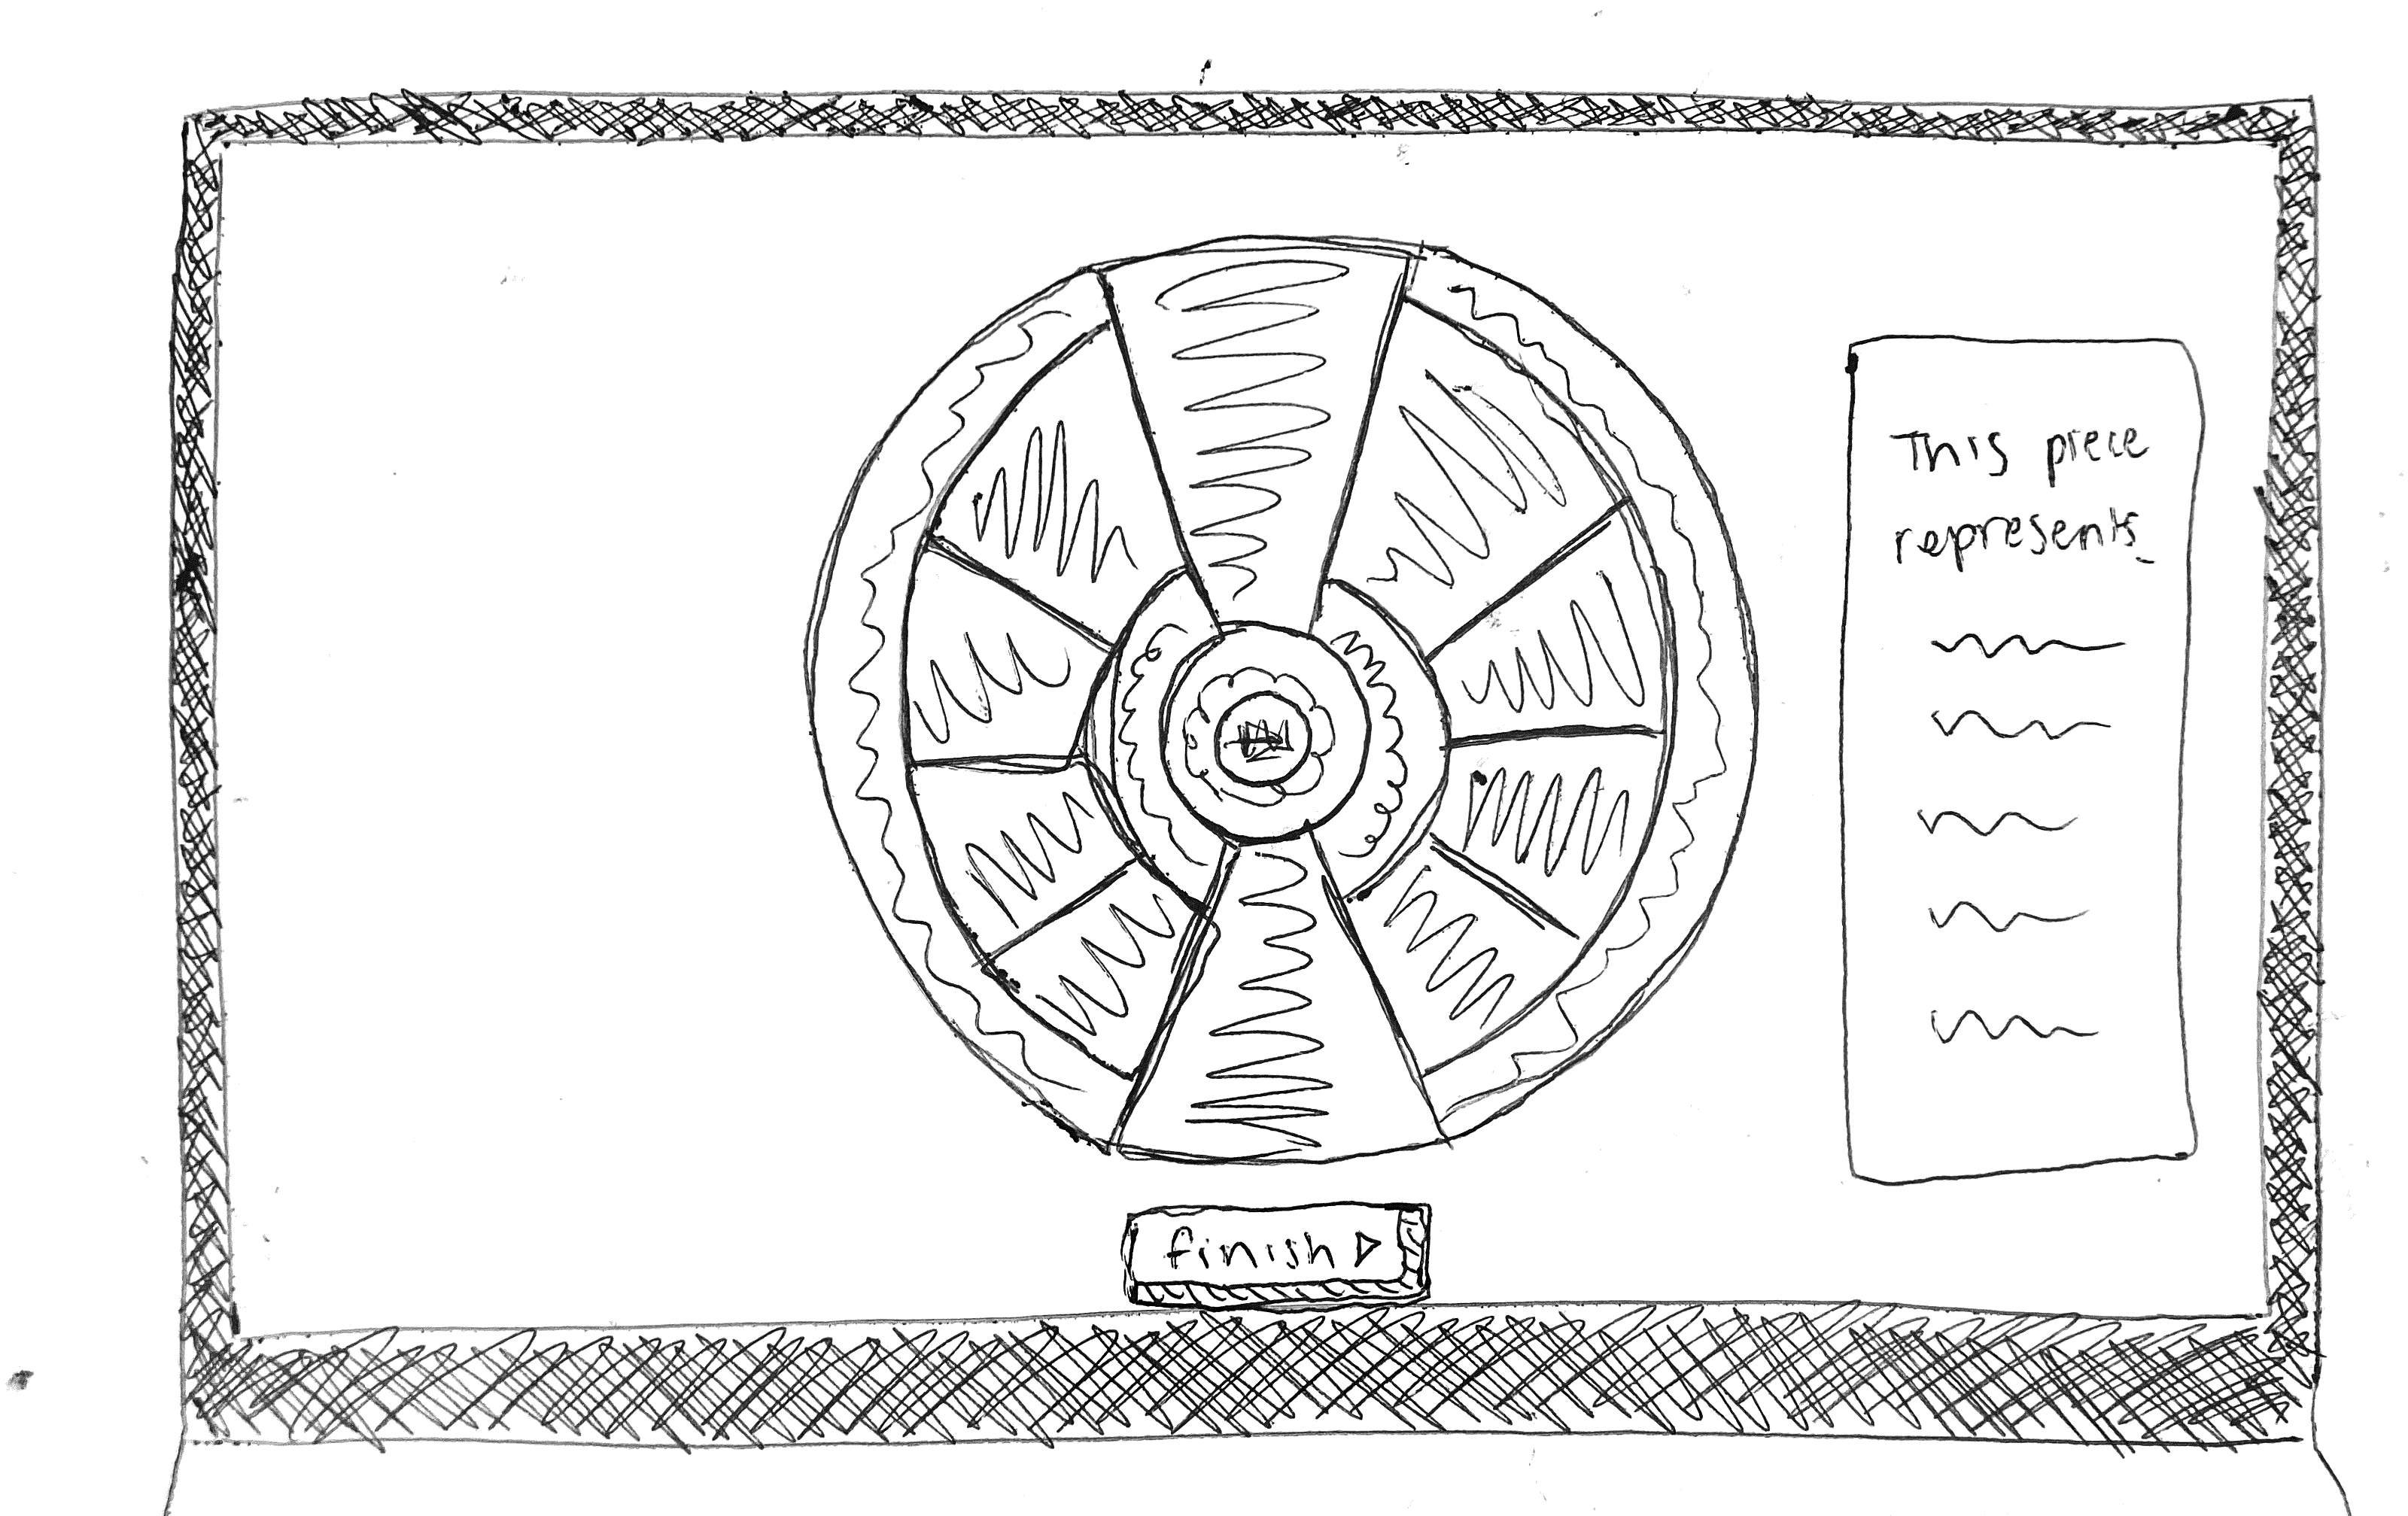 This piece
represents
finish